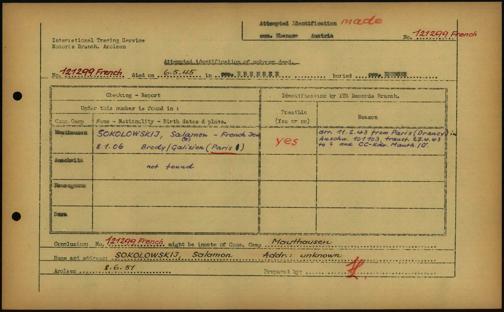 Attempted Identification made
com. Ebensee Austria
International Tracing Service
Records Branch, Arolsen
No. 121299 French
Attempted identification of unknown dead.
No. 121299 French died on 6.5.45 in com. EBENSEE buried com. EBENSEE
Checking - Report
Identifications by ITS Records Branch.
Under this number is found in :
Conc. Camp
Name - Nationality - Birth dates & place.
Possible
(Yes or no)
Reason
Mauthausen
SOKOLOWSKIJ, Salamon - French Jew
8.1.06 Brody/Galizien (Paris)
yes
arr. 11.2.43 from Paris (Drancy) in
Auschw. 101103, transf.
to and CC-Kdo. Mauth
Auschwitz
not found
Dora
Conclusion: No. 121299 French might be inmate of Conc. Camp Mauthausen
Name and address: SOKOLOWSKIJ, Salamon Addr: unknown
Arolsen 8.6.51 Prepared by: